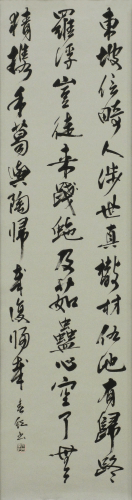 東坡信畸人涉世真散材仇池有歸路
羅浮豈徒來踐蛇及茹蠱心空了無
猜攜手葛與陶歸哉復歸哉